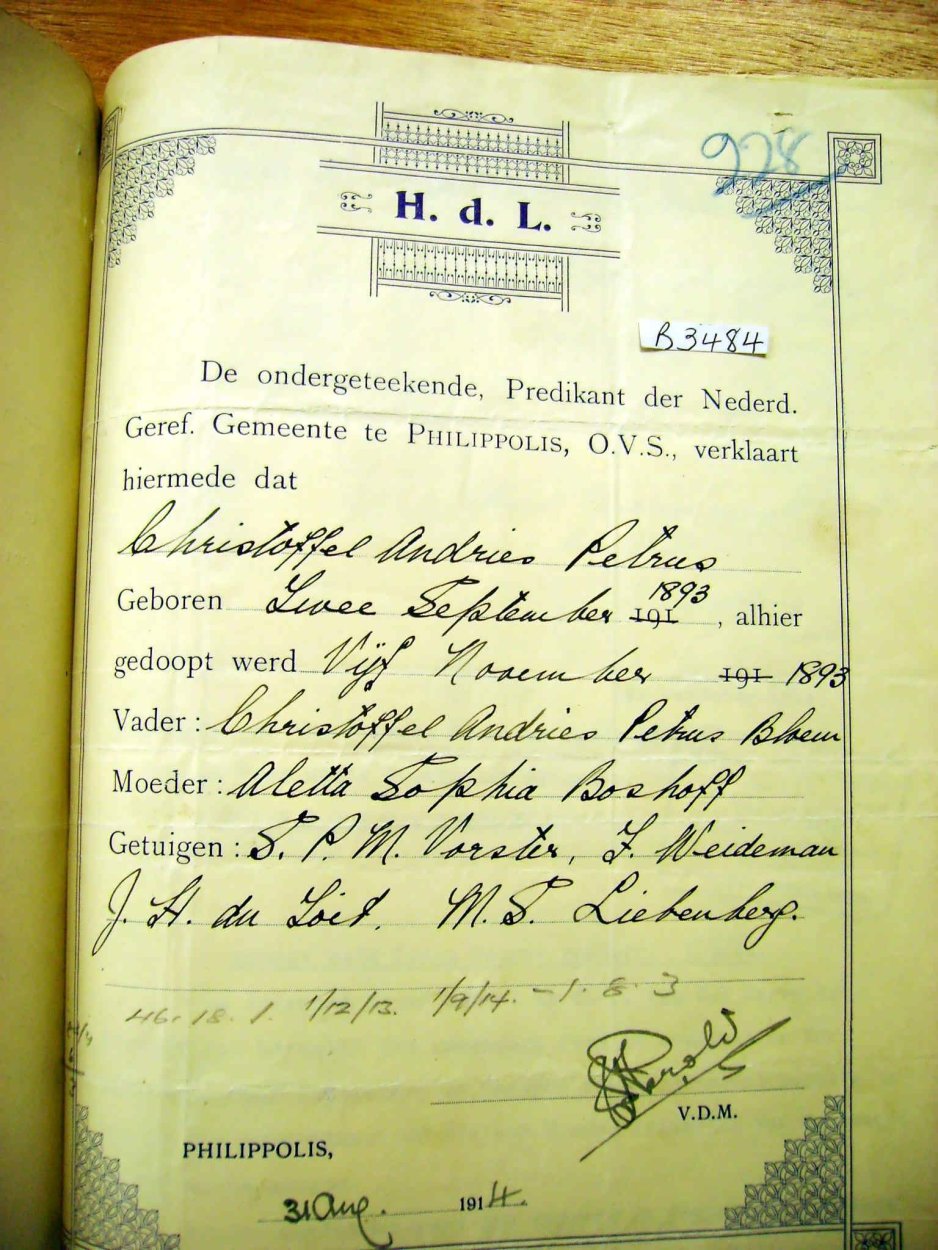 928
H. d. L.
B3484
De ondergeteekende, Predikant der Nederd.
Geref. Gemeente te PHILIPPOLIS, O.V.S., verklaart
hiermede dat
Christoffel Andries Petrus
Geboren Twee September 191 1893, alhier
gedoopt werd Vijf November 191 1893
Vader: Christoffel Andries Petrus Bloem
Moeder: Aletta Sophia Boshoff
Getuigen: S. P. M. Vorster, F. Weideman
J. H. du Toit. M. S. Liebenberg.
46. 18. 1. 1/12/13. 1/9/14. - 1. 8. 3
V.D.M.
PHILIPPOLIS,
31 Aug. 1914.